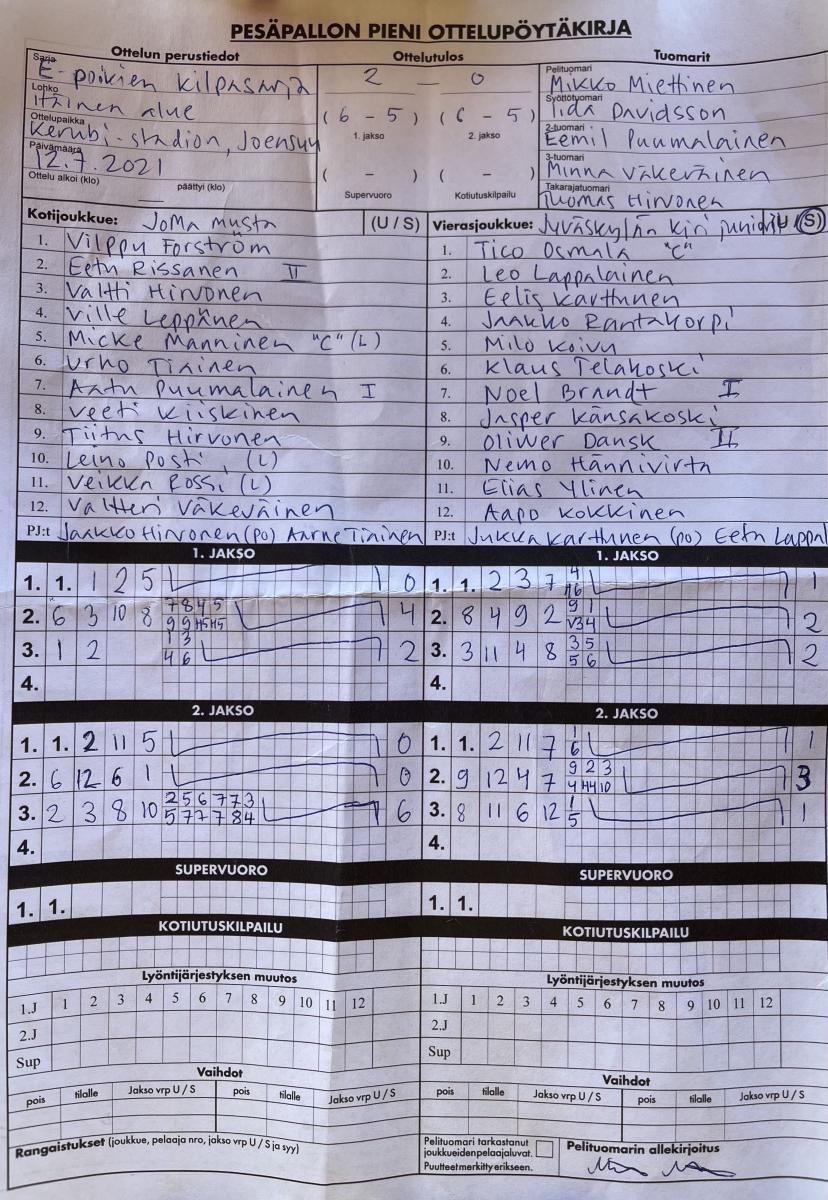 PESÄPALLON PIENI OTTELUPÖYTÄKIRJA
Ottelun perustiedot
Sarja
E-poikien kilpasarja
Lohko
Itäinen alue
Ottelupaikka
Kerubi-stadion, Joensuu
Päivämäärä
12.7.2021
Ottelu alkoi (klo) päättyi (klo)
Ottelutulos
2 — 0
(6 - 5) (6 - 5)
1. jakso 2. jakso
( - ) ( - )
Supervuoro Kotiutuskilpailu
Tuomarit
Pelituomari
Mikko Miettinen
Syöttötuomari
Iida Davidsson
2-tuomari
Eemil Puumalainen
3-tuomari
Minna Väkeväinen
Takarajatuomari
Tuomas Hirvonen
Kotijoukkue: JoMa musta (U / S)
1. Vilppu Forström
2. Eetu Rissanen II
3. Valtti Hirvonen
4. Ville Leppänen
5. Micke Manninen "C" (L)
6. Urho Tiainen
7. Aatu Puumalainen I
8. Veeti Kiiskinen
9. Tiitus Hirvonen
10. Leino Posti (L)
11. Veikka Rossi (L)
12. Valtteri Väkeväinen
PJ:t Jaakko Hirvonen (po) Aarne Tiainen
Vierasjoukkue: Jyväskylän Kiri juniorit U / S)
1. Tico Osmala "C"
2. Leo Lappalainen
3. Eelis Karttunen
4. Jaakko Rantakorpi
5. Milo Koivu
6. Klaus Telakoski
7. Noel Brandt I
8. Jasper Känsäkoski
9. Oliwer Dansk II
10. Nemo Hännivirta
11. Elias Ylinen
12. Aapo Kokkinen
PJ:t Jukka Karttunen (po) Eetu Lappal
1. JAKSO
1. 1. 1 2 5 0
2. 6 3 10 8 7 8 4 5 4
9 9 H5 H5
3. 1 2 1 3 2
4 6
4.
1. JAKSO
1. 1. 2 3 7 4 1
H6
2. 8 4 9 2 9 1 2
V3 4
3. 3 11 4 8 3 5 2
5 6
4.
2. JAKSO
1. 1. 2 11 5 0
2. 6 12 6 1 0
3. 2 3 8 10 2 5 6 7 7 3 6
5 7 7 7 8 4
4.
2. JAKSO
1. 1. 2 11 7 1 1
6
2. 9 12 4 7 9 2 3 3
4 H4 10
3. 8 11 6 12 1 1
5
4.
SUPERVUORO
1. 1.
SUPERVUORO
1. 1.
KOTIUTUSKILPAILU
KOTIUTUSKILPAILU
Lyöntijärjestyksen muutos
1.J 1 2 3 4 5 6 7 8 9 10 11 12
2.J
Sup
Lyöntijärjestyksen muutos
1.J 1 2 3 4 5 6 7 8 9 10 11 12
2.J
Sup
Vaihdot
pois tilalle Jakso vrp U / S pois tilalle Jakso vrp U / S
Vaihdot
pois tilalle Jakso vrp U / S pois tilalle Jakso vrp U / S
Rangaistukset (joukkue, pelaaja nro, jakso vrp U / S ja syy)
Pelituomari tarkastanut
joukkueiden pelaajaluvat.
Puutteet merkitty erikseen.
Pelituomarin allekirjoitus